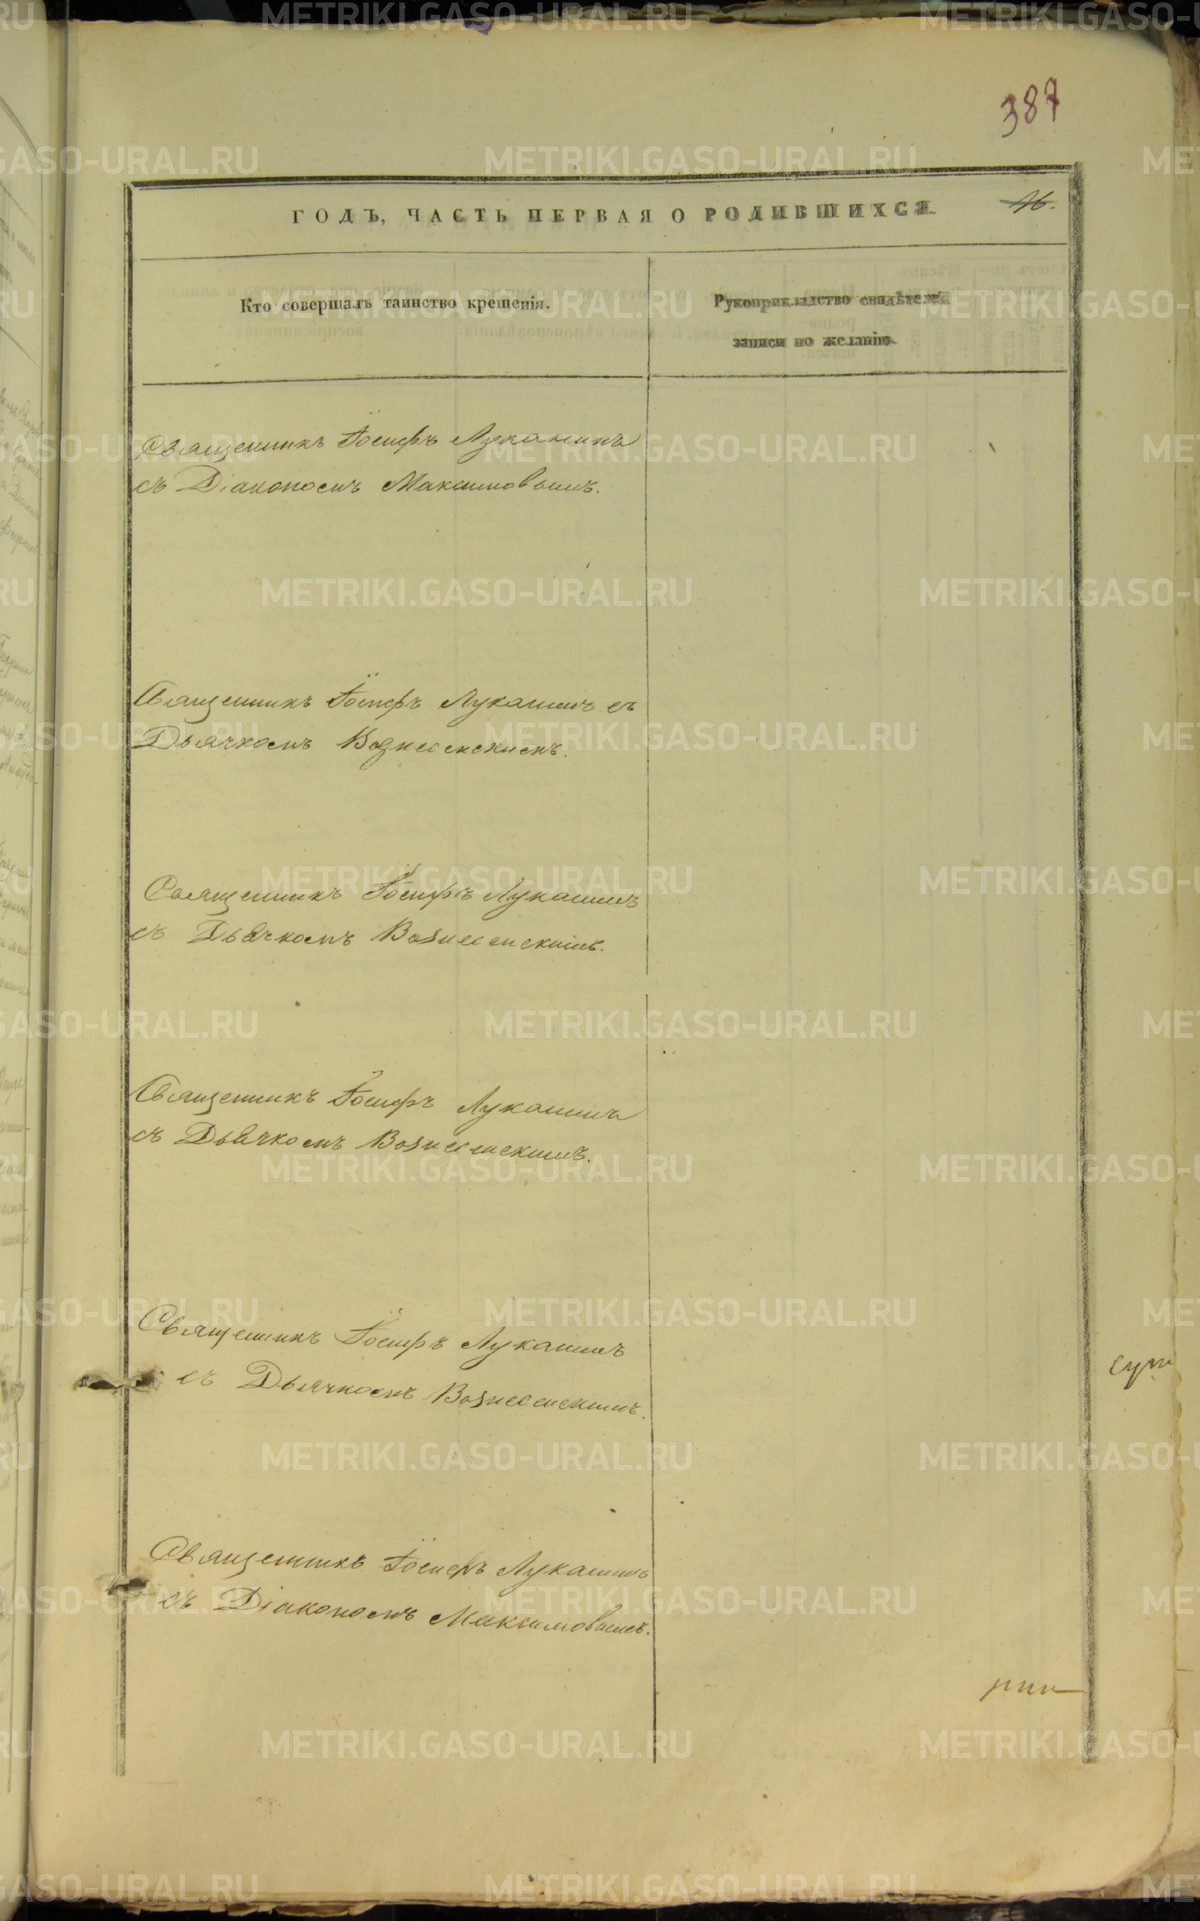 387
ГОДЪ, ЧАСТЬ ПЕРВАЯ О РОДИВШИХСЯ.
46.
Кто совершалъ таинство крещенія.
Рукоприкладство свидѣтелей
записи по желанію.
Священникъ Іосифъ Лукашинъ
съ Діакономъ Максимовымъ.
Священникъ Іосифъ Лукашинъ съ
Дьячкомъ Вознесенскимъ.
Священникъ Іосифъ Лукашинъ
съ Дьячкомъ Вознесенскимъ.
Священникъ Іосифъ Лукашинъ
съ Дьячкомъ Вознесенскимъ.
Священникъ Іосифъ Лукашинъ
съ Дьячкомъ Вознесенскимъ.
Священникъ Іосифъ Лукашинъ
съ Діакономъ Максимовымъ.
METRIKI.GASO-URAL.RU